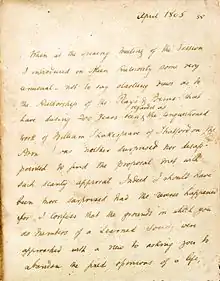 April 1805 85
When at the evening Meeting of the Session
I introduced on their Authority some very
unusual, not to say startling views as to
the Authorship of the Plays & Poems that
have during 200 years been regarded as the unquestioned
work of William Shakespeare of Stratford on the
Avon I was neither surprised nor disap-
pointed to find the proposal met with
such scanty approval Indeed I should have
been more surprised had the reverse happened
for I confess that the grounds on which you
as Members of a Learned Society were
approached with a view to asking you to
abandon the fixed opinions of a life,